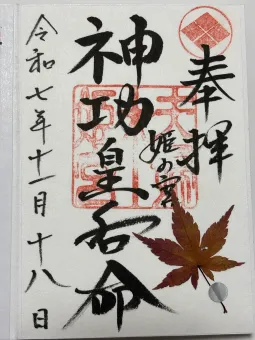 奉拝
姫の宮
神功皇后命
令和七年十一月十八日